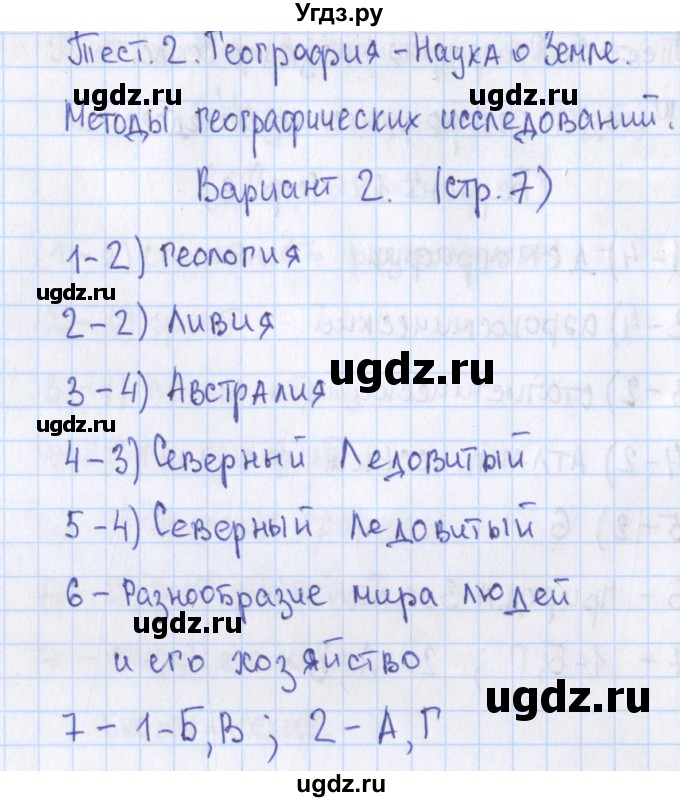 Угдз.ру
Тест. 2. География - Наука о Земле.
ugdz.ru ugdz.ru
Методы географических исследований.
Вариант 2. (стр. 7)
1-2) геология
ugdz.ru
2-2) Ливия
ugdz.ru
3-4) Австралия
ugdz.ru
4-3) Северный Ледовитый
ugdz.ru
5-4) Северный Ледовитый
6 - Разнообразие мира людей
ugdz.ru
и его хозяйство
ugdz.ru
7 - 1-Б,В; 2-А,Г
ugdz.ru